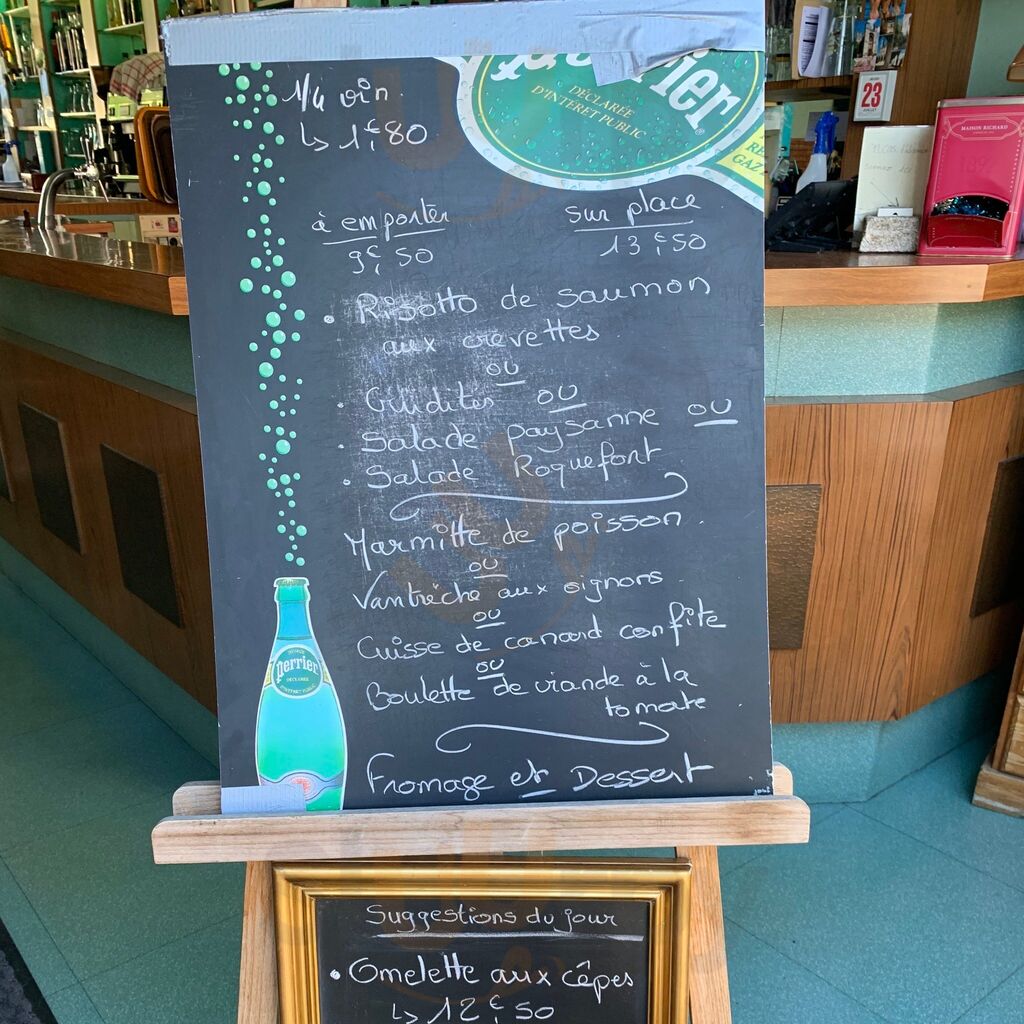 1/4 vin.
↳ 1€,80
Perrier
DÉCLARÉE
D'INTÉRÊT PUBLIC
à emporter
9€,50
sur place
13€,50
• Risotto de saumon
aux crevettes.
ou
• Crudités ou
• Salade paysanne ou
• Salade Roquefort
Marmitte de poisson.
ou
Vantrêche aux oignons
ou
Cuisse de canard confite
ou
Boulette de viande à la
tomate.
Fromage et Dessert
perrier
DÉCLARÉE
D'INTÉRÊT PUBLIC
Suggestions du jour
• Omelette aux cêpes
↳ 12€,50
23
MAISON RICHARD